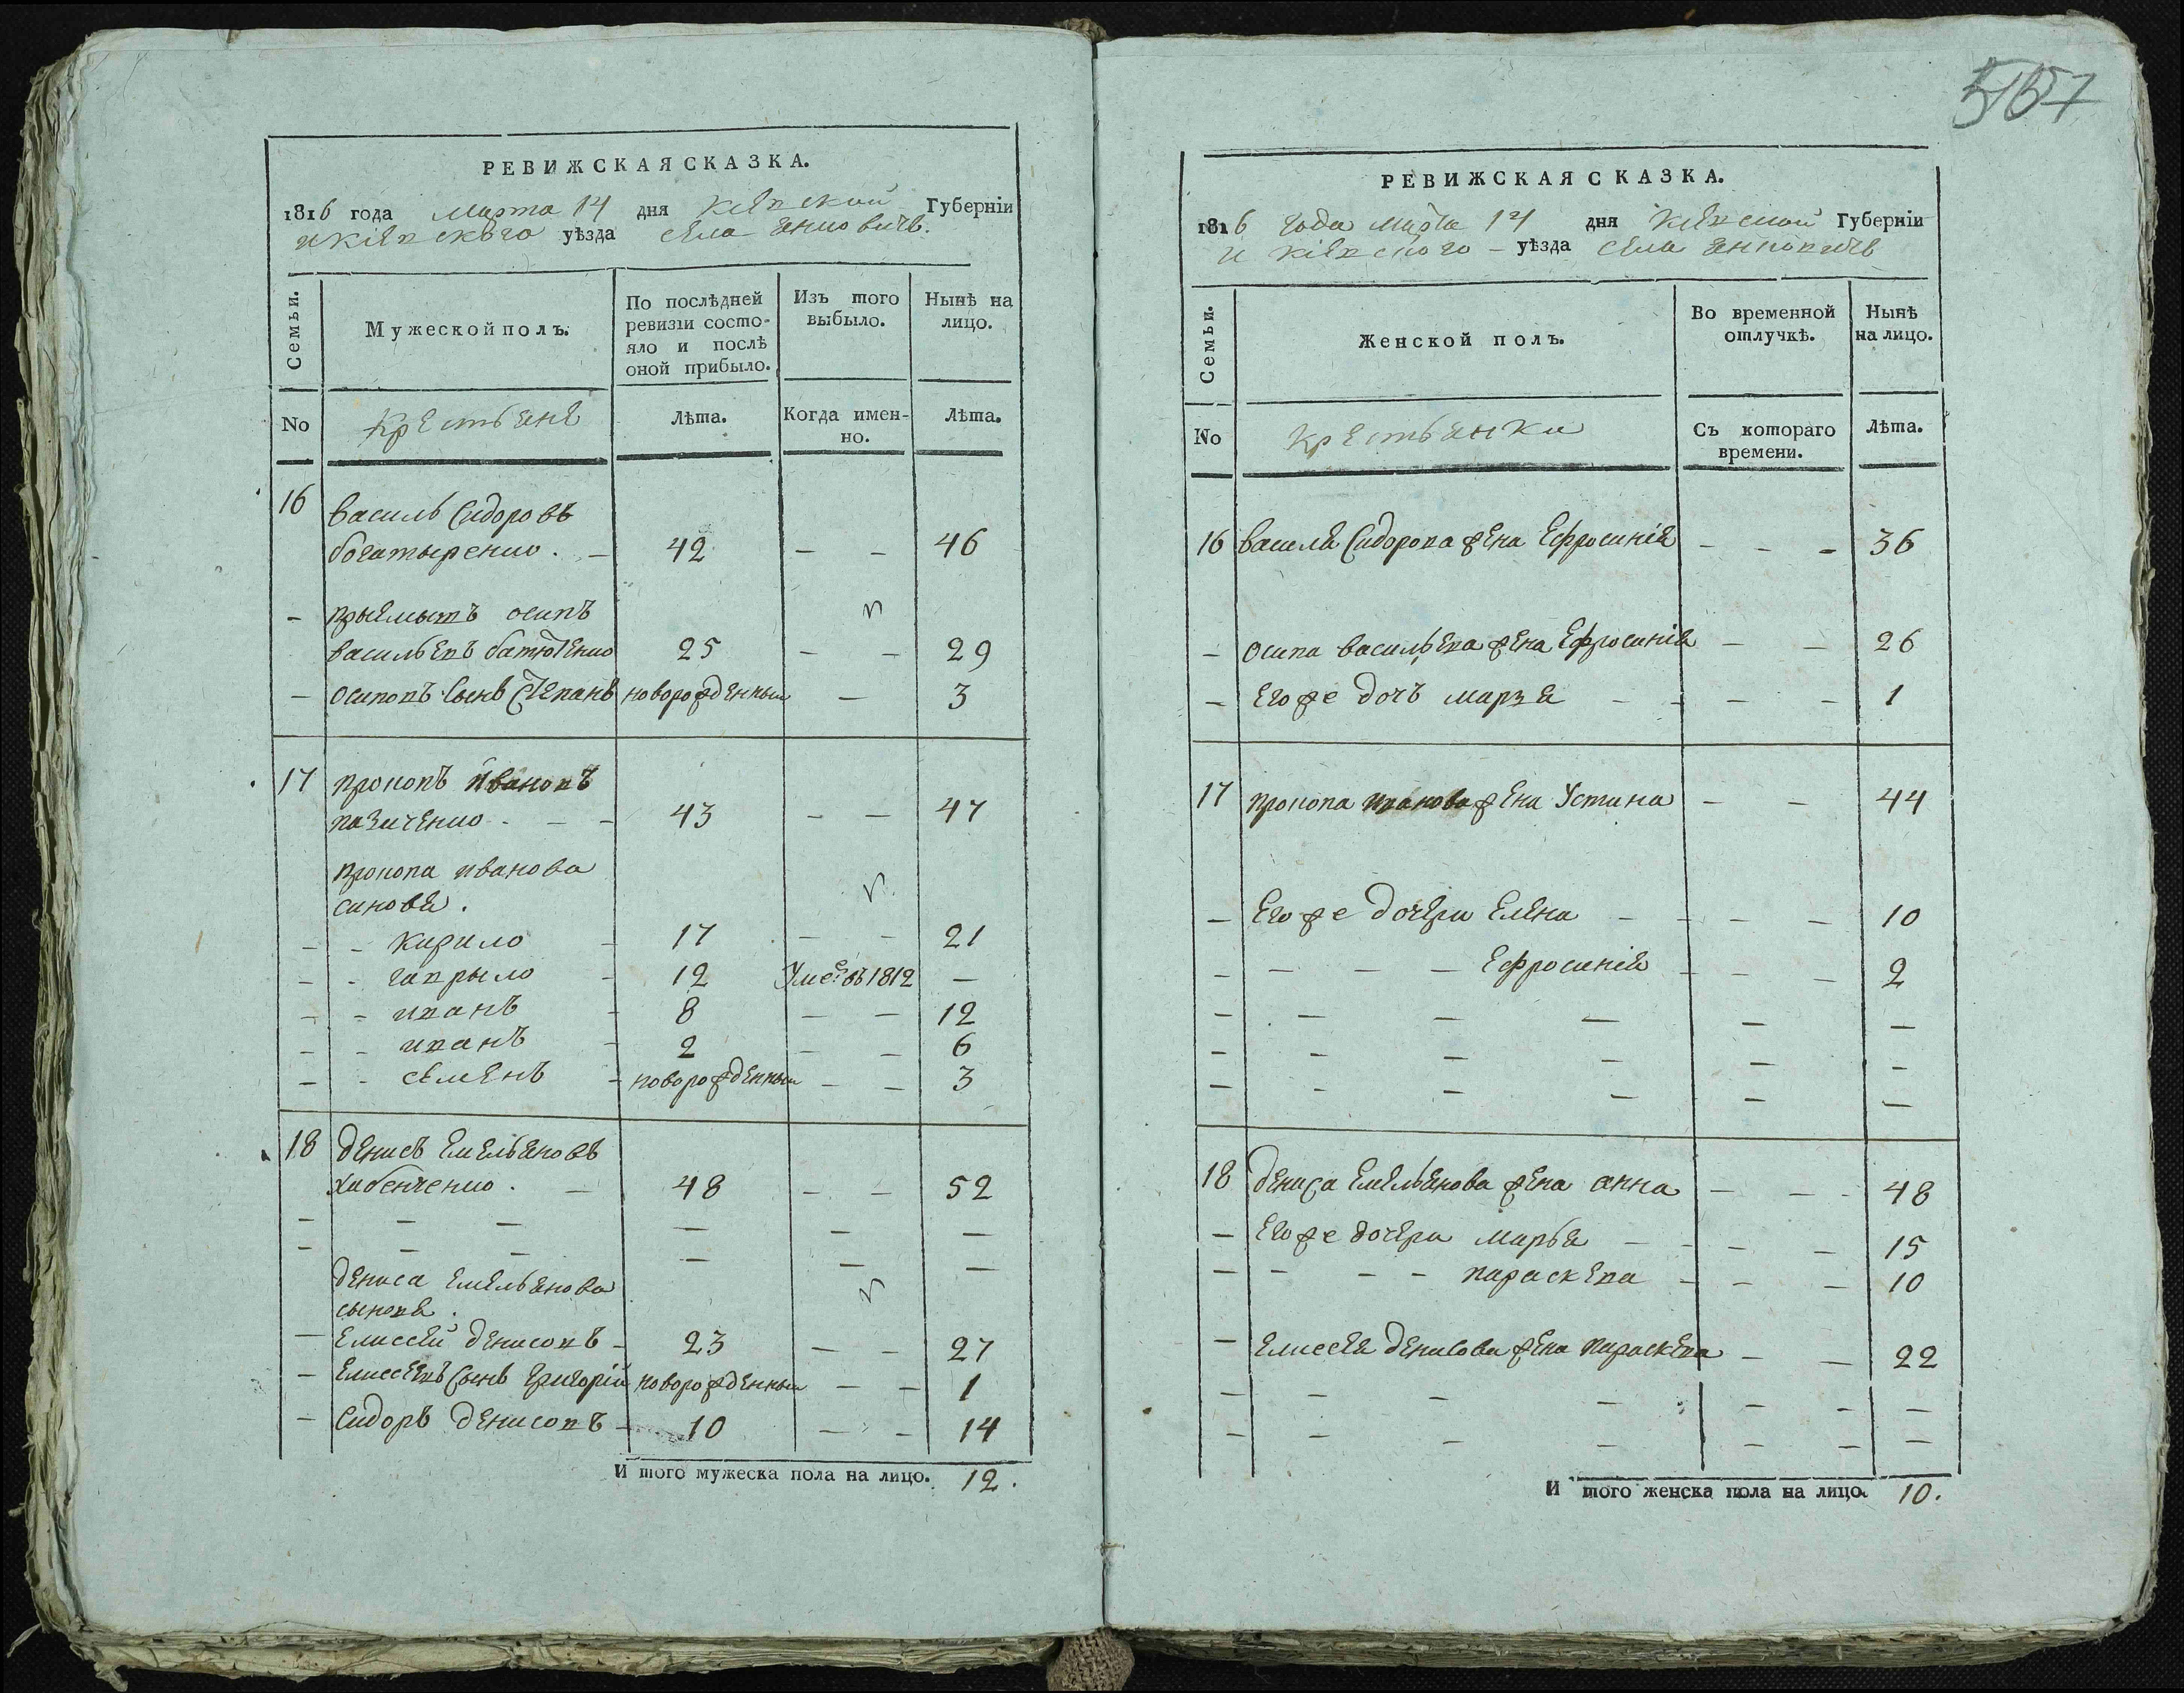 5167
РЕВИЖСКАЯ СКАЗКА.
1816 года Марта 14 дня Кіевской Губерніи
и Кіевскаго уѣзда села Янковичъ.
Семьи.
Мужеской полъ.
По послѣдней ревизіи состояло и послѣ оной прибыло.
Изъ того выбыло.
Нынѣ на лицо.
No
Крестьяне
Лѣта.
Когда именно.
Лѣта.
16 Василь Сидоровъ
богатыренко. – 42 – – 46
– прыемытъ осипъ
васильевъ батюTенко 25 – – 29
– осиповъ сынъ Степанъ новорожденный – 3
17 прокопъ Ивановъ
назиченко – – 43 – – 47
прокопа иванова
синовя.
– – кирило – 17 – – 21
– – гаврыло – 12 Умеръ въ 1812 –
– – иванъ – 8 – – 12
– – иванъ – 2 – – 6
– – семенъ – новорожденный – – 3
18 денисъ Емельяновъ
хибенченко. – 48 – – 52
– – – – – –
– – – – – –
дениса Емельянова
сыновя.
– Елисей денисовъ – 23 – – 27
– Елисеевъ сынъ Григорій новорожденный – – 1
– Сидоръ денисовъ – 10 – – 14
И того мужеска пола на лицо. 12.
РЕВИЖСКАЯ СКАЗКА.
1816 года марта 14 дня Кіевской Губерніи
и Кіевского – уѣзда села Янковичъ
Семьи.
Женской полъ.
Во временной отлучкѣ.
Нынѣ на лицо.
No
Крестьянки
Съ котораго времени.
Лѣта.
16 василя Сидорова жена Ефросинія – – – 36
– осипа васильева жена Ефросинія – – 26
– Его же дочъ маря – – – – 1
17 прокопа иванова жена Устина – – 44
– Его же дочери Елена – – – – 10
– – – – Ефросинія – – – 2
– – – – – –
– – – – – –
– – – – – –
18 дениса Емельянова жена анна – – – 48
– Его же дочери марья – – – – 15
– – – – параскева – – – 10
– Елисея денисова жена параскева – – 22
– – – – – – –
– – – – – – –
И того женска пола на лицо. 10.